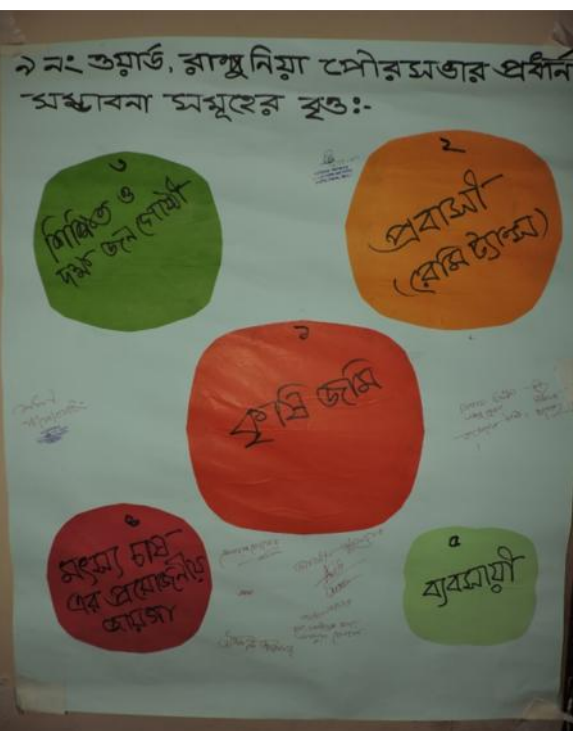 ৯ নং ওয়ার্ড, রাঙ্গুনিয়া পৌরসভার প্রধান
সম্ভাবনা সমূহের বৃত্ত:-
৩
শিক্ষিত ও
দক্ষ জনগোষ্ঠী
২
প্রবাসী
(রেমিট্যান্স)
১
কৃষি জমি
৪
মৎস্য চাষ
এর প্রয়োজনীয়
জায়গা
৫
ব্যবসায়ী